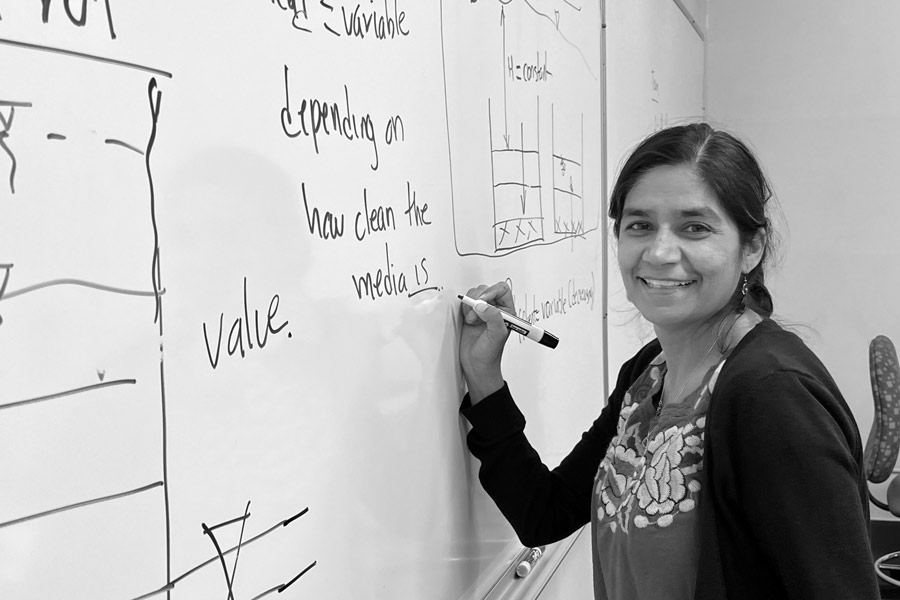 = variable
depending on
how clean the
media is.
value.
H = constant
= variable